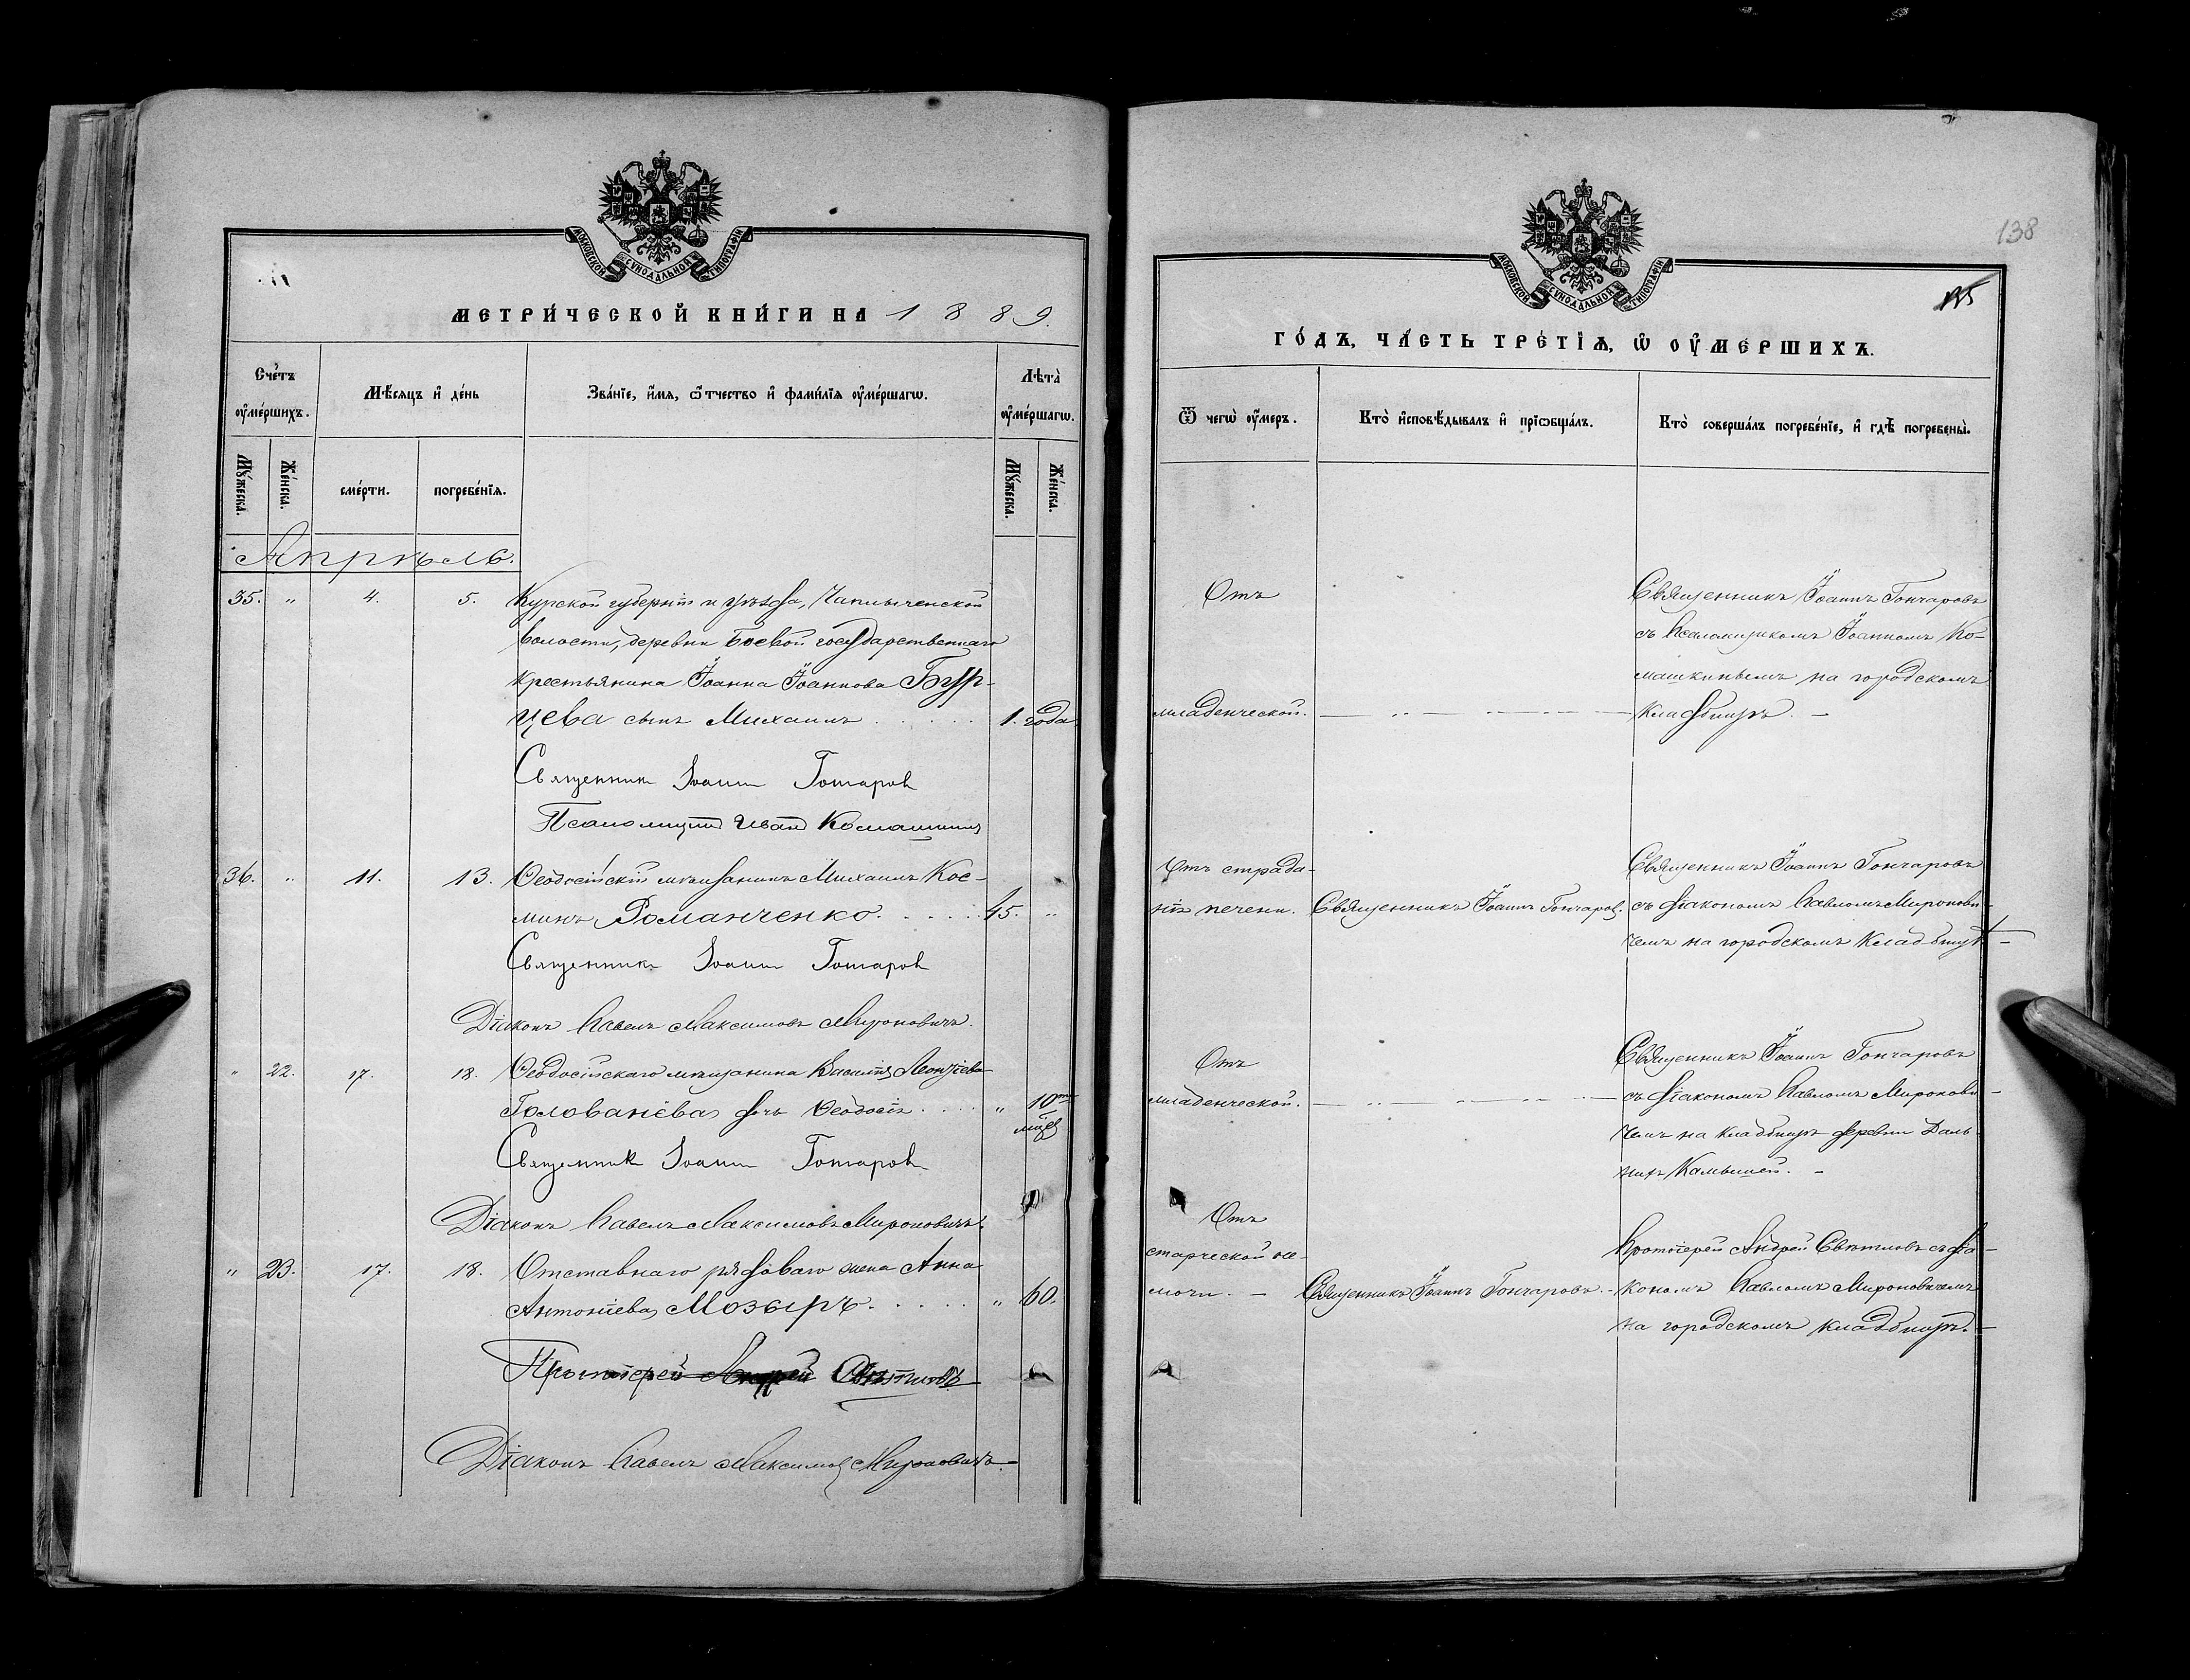 МОСКОВСКОЙ СѴНОДАЛЬНОЙ ТИПОГРАФІИ
МЕТРИ́ЧЕСКОЙ КНИ́ГИ НА 1889.
Сче́тъ ᲂу҆ме́ршихъ.
Мѣ́сяцъ и҆ де́нь
Зва́нїе, и҆́мя, ѻ҆́тчество и҆ фами́лїя ᲂу҆ме́ршагѡ.
Лѣта̀ ᲂу҆ме́ршагѡ.
Мꙋ́жеска.
Же́нска.
сме́рти.
погребе́нїя.
Мꙋ́жеска.
Же́нска.
Апрѣль.
35. " 4. 5. Курской губерніи и уѣзда,
волости, деревни Боевой государственнаго
крестьянина Іоанна Іоаннова Бур-
цева сынъ Михаилъ . . . . . 1. года
Священник Іоанн Гончаров
Псаломщик Иван
36. " 11. 13. Ѳеодосійскій мѣщанинъ Михаилъ Кос-
минъ Романченко. . . . . . 45. "
Священник Іоанн Гончаров
Діаконъ Павелъ Максимовъ Мироновичъ.
" 22. 17. 18. Ѳеодосійскаго мѣщанина Василія Леонтіева
Голованёва дочь Ѳеодосія . . . . " 10ти мцѣ
Священник Іоанн Гончаров
Діаконъ Павелъ Максимовъ Мироновичъ.
" 23. 17. 18. Отставнаго рядоваго жена Анна
Антоніева Мозырь. . . . . " 60.
Протоіерей Андрей Свѣтловъ
Діаконъ Павелъ Максимов Мироновичъ.
МОСКОВСКОЙ СѴНОДАЛЬНОЙ ТИПОГРАФІИ
138
ГО́ДЪ, ЧА́СТЬ ТРЕ́ТЇѦ, Ѡ҆ ОУ҆МЕ́РШИХЪ.
Ѿ чегѡ̀ ᲂу҆́меръ.
Кто̀ и҆сповѣ́дывалъ и҆ прїѡбща́лъ.
Кто̀ соверша́лъ погребе́нїе, и҆ гдѣ̀ погребены̀.
Отъ
младенческой.
Священникъ Іоаннъ Гончаровъ
съ Псаломщикомъ Іоанномъ Ко-
машкинымъ на городскомъ
кладбищѣ. –
Отъ страда-
нія печени. Священникъ Іоаннъ Гончаров.
Священникъ Іоаннъ Гончаровъ
съ діакономъ Павломъ Миронови-
чемъ на городскомъ кладбищѣ –
Отъ
младенческой.
Священникъ Іоаннъ Гончаровъ
съ діакономъ Павломъ Миронови-
чемъ на кладбищѣ деревни Даль-
нихъ Камышей. –
Отъ
старческой не-
мочи. – Священникъ Іоаннъ Гончаровъ. –
Протоіерей Андрей Свѣтловъ съ діа-
кономъ Павломъ Мироновичемъ
на городскомъ кладбищѣ. –